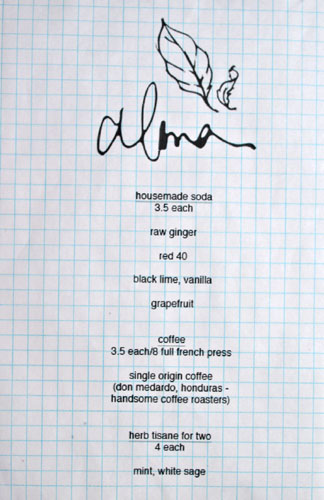 alma
housemade soda
3.5 each
raw ginger
red 40
black lime, vanilla
grapefruit
coffee
3.5 each/8 full french press
single origin coffee
(don medardo, honduras -
handsome coffee roasters)
herb tisane for two
4 each
mint, white sage